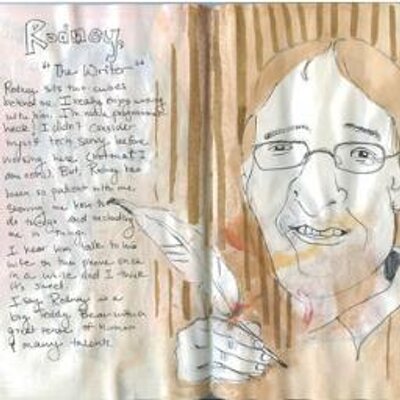 Rodney,
"The Writer"
Rodney sits two cubes
behind me. I really enjoy working
with him. I'm not a programmer
heck! I didn't consider
myself tech savvy before
working here (not that I
am now). But, Rodney has
been so patient with me.
Showing me how to
do things and including
me in things.
I hear him talk to his
wife on the phone once
in a while and I think
it's sweet.
I say Rodney is a
big Teddy Bear with a
great sense of humor
& many talents